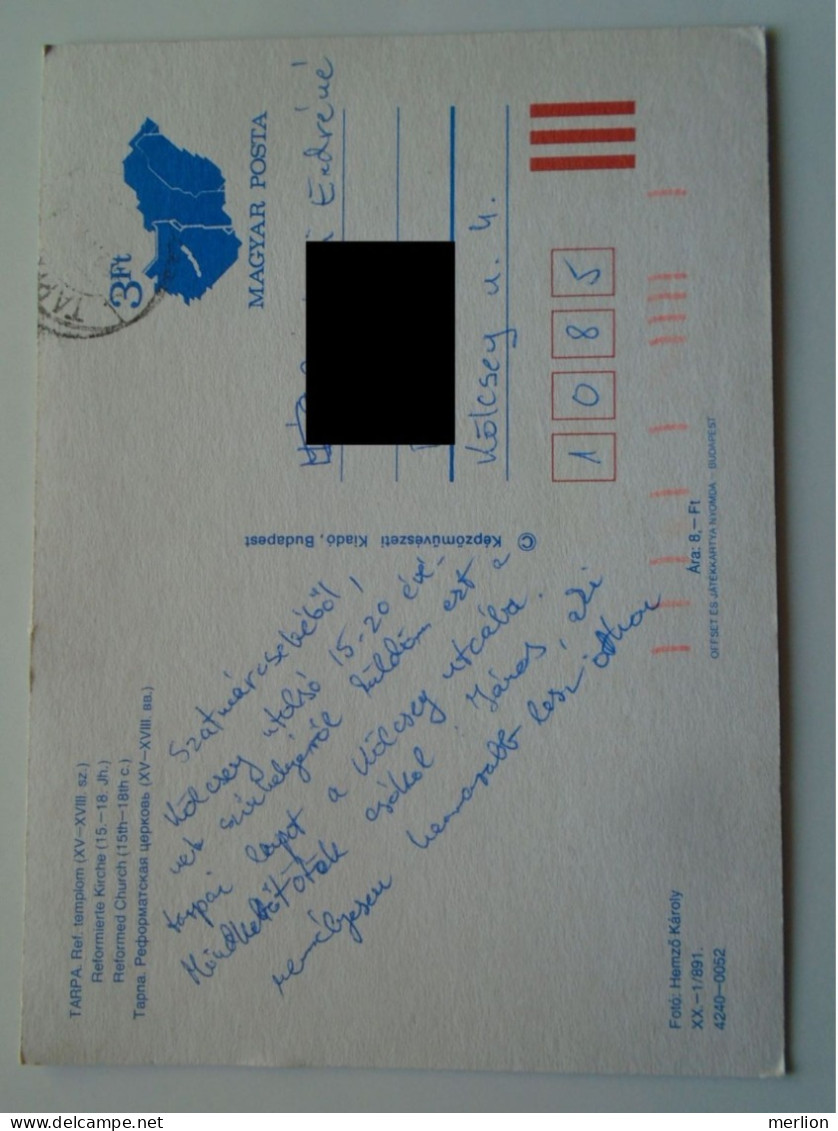 TARPA. Ref. templom (XV–XVIII. sz.)
Reformierte Kirche (15.–18. Jh.)
Reformed Church (15th–18th c.)
Тарпа. Реформатская церковь (XV–XVIII. вв.)
Szatmárcsekéből!
Kölcsey utolsó 15-20 évé-
nek színhelyéről küldöm ezt a
tarpai lapot a Kölcsey utcába.
Mindkettőtöket csókol: János, aki
remélhetőleg hamarabb lesz otthon
Fotó: Hemző Károly
XX.–1/891.
4240–0052
© Képzőművészeti Kiadó, Budapest
3Ft
MAGYAR POSTA
TARPA
Endréné
Kölcsey u. 4.
1 0 8 5
Ára: 8,– Ft
OFFSET ÉS JÁTÉKKÁRTYA NYOMDA – BUDAPEST
merlion